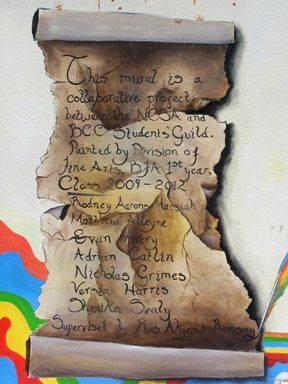 This mural is a
collaborative project
between the NCSA and
BCC Students' Guild.
Painted by Division of
Fine Arts, BFA 1st year.
Class 2009-2012
Rodney Aarons
Matthew Alleyne
Evan
Adrian Catlin
Nicholas Grimes
Versia Harris
Shanika Sealy
Supervised by Ras Ramsay